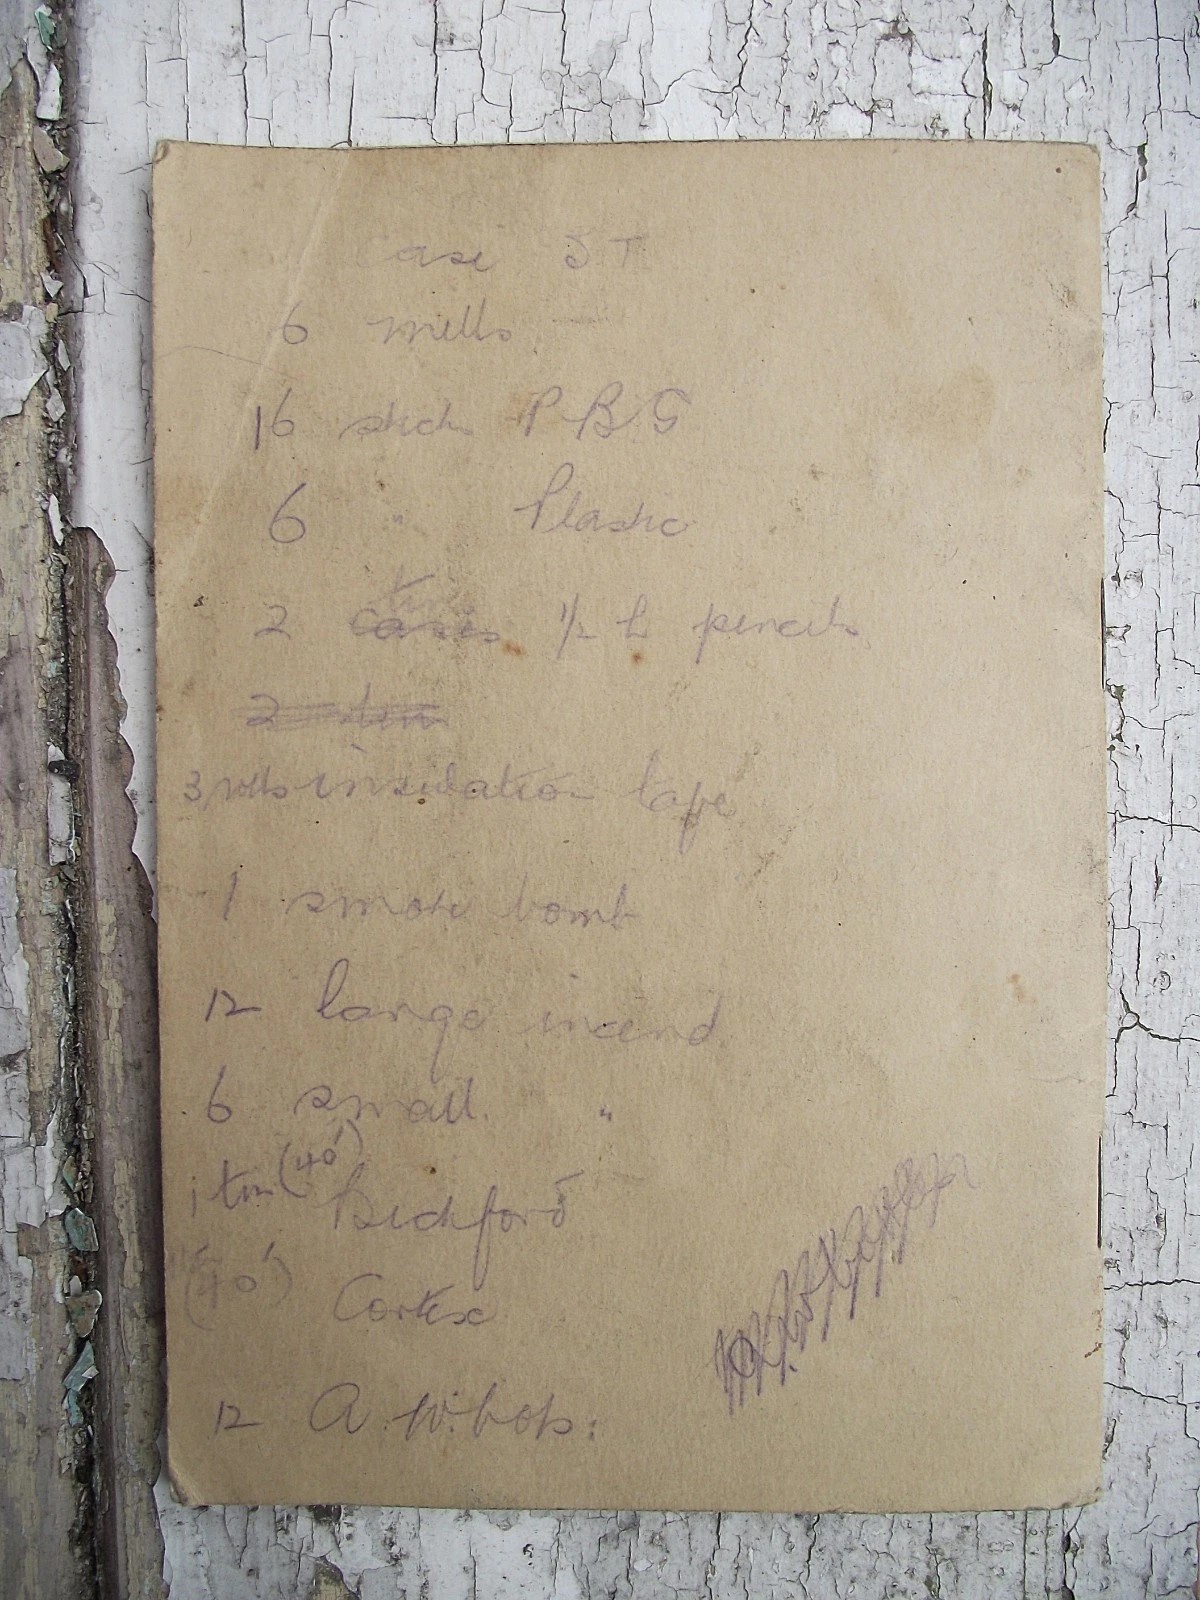 Case S T
6 mills
16 sticks P B G
6 " Plastic
2 tins 1/2 h pencils
3 rolls insulation tape
1 smoke bomb
12 large incend
6 small "
1 tin (40') Bickford
(40') Cortex
12 A. W. bots.